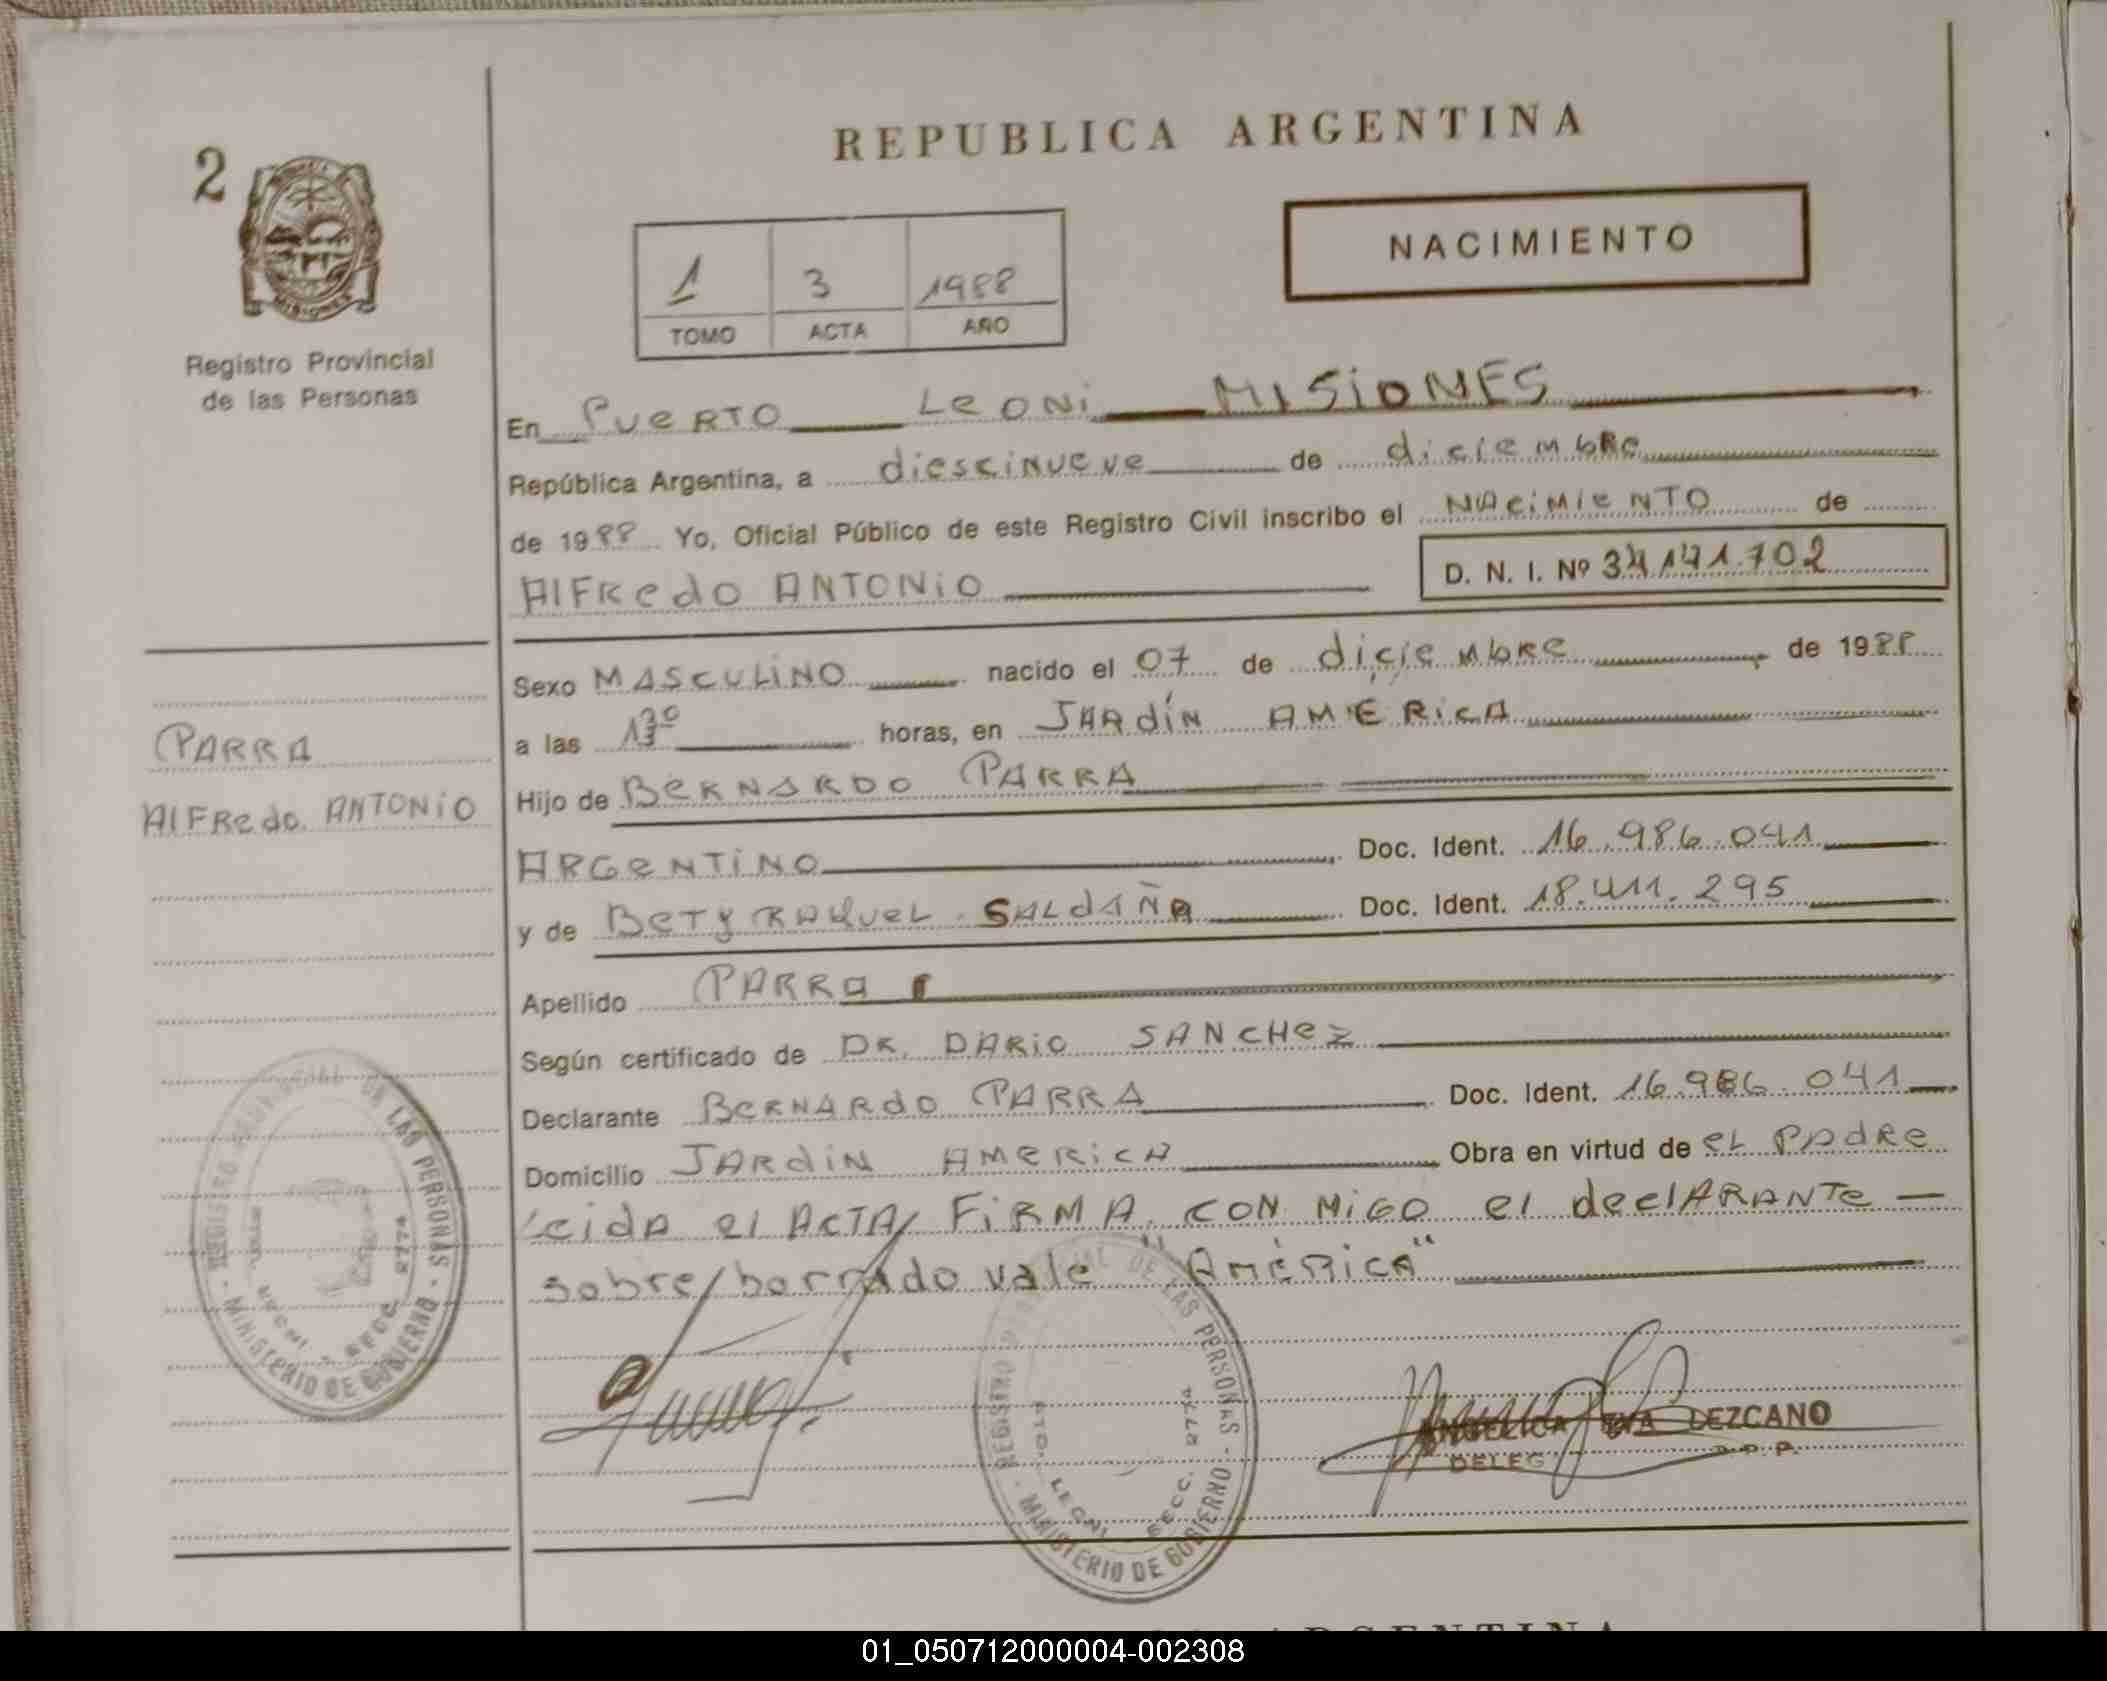 2
REPUBLICA ARGENTINA
NACIMIENTO
1 3 1988
TOMO ACTA AÑO
Registro Provincial
de las Personas
En PUERTO LEONI MISIONES
República Argentina, a diescinueve de diciembre
de 1988 Yo, Oficial Público de este Registro Civil inscribo el NACIMIENTO de
AlFRedo ANTONiO
D. N. I. Nº 34.141.702
Sexo MASCULINO nacido el 07 de diciembre de 1988
a las 13 30 horas, en JARdíN AMERICA
Hijo de BERNARDO PARRA
ARGENTINO Doc. Ident. 16.986.041
y de BETY RAQUEL SALDAÑA Doc. Ident. 18.411.295
Apellido PARRA
Según certificado de DR. DARIO SANCHEZ
Declarante BERNARDO PARRA Doc. Ident. 16.986.041
Domicilio JARdIN AMERICA Obra en virtud de el PADRE
leida el ACTA, FIRMA CON MIGO el declARANTE
sobre/borrado vale "América"
PARRA
AlFRedo ANTONiO
REGISTRO DE LAS PERSONAS - MINISTERIO DE GOBIERNO
SECC. 2774
REGISTRO DE LAS PERSONAS - MINISTERIO DE GOBIERNO
PTO. LEONI SECC. 2774
ANGELICA EVA LEZCANO
DELEG
01_050712000004-002308